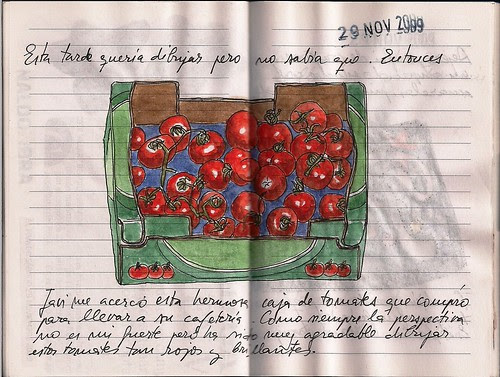 29 NOV 2009
Esta tarde quería dibujar pero no sabía qué. Entonces
Javi me acercó esta hermosa caja de tomates que compró
para llevar a su cafetería. Como siempre la perspectiva
no es mi fuerte pero ha sido muy agradable dibujar
estos tomates tan rojos y brillantes.